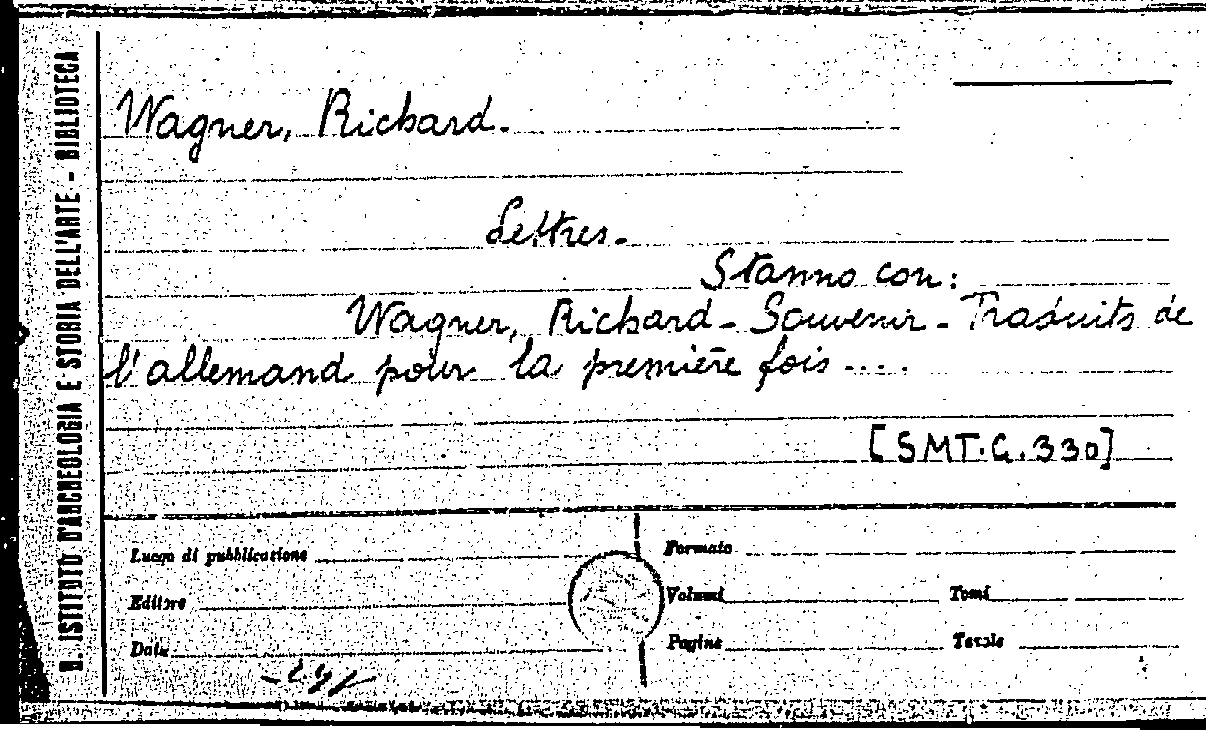 R. ISTITUTO D'ARCHEOLOGIA E STORIA DELL'ARTE - BIBLIOTECA
Wagner, Richard.
Lettres.
Stanno con:
Wagner, Richard - Souvenir - Traduits de
l'allemand pour la première fois ....
[SMT.G.330]
Luogo di pubblicazione
Formato
Editore
Volumi
Tomi
Data
Pagine
Tavole